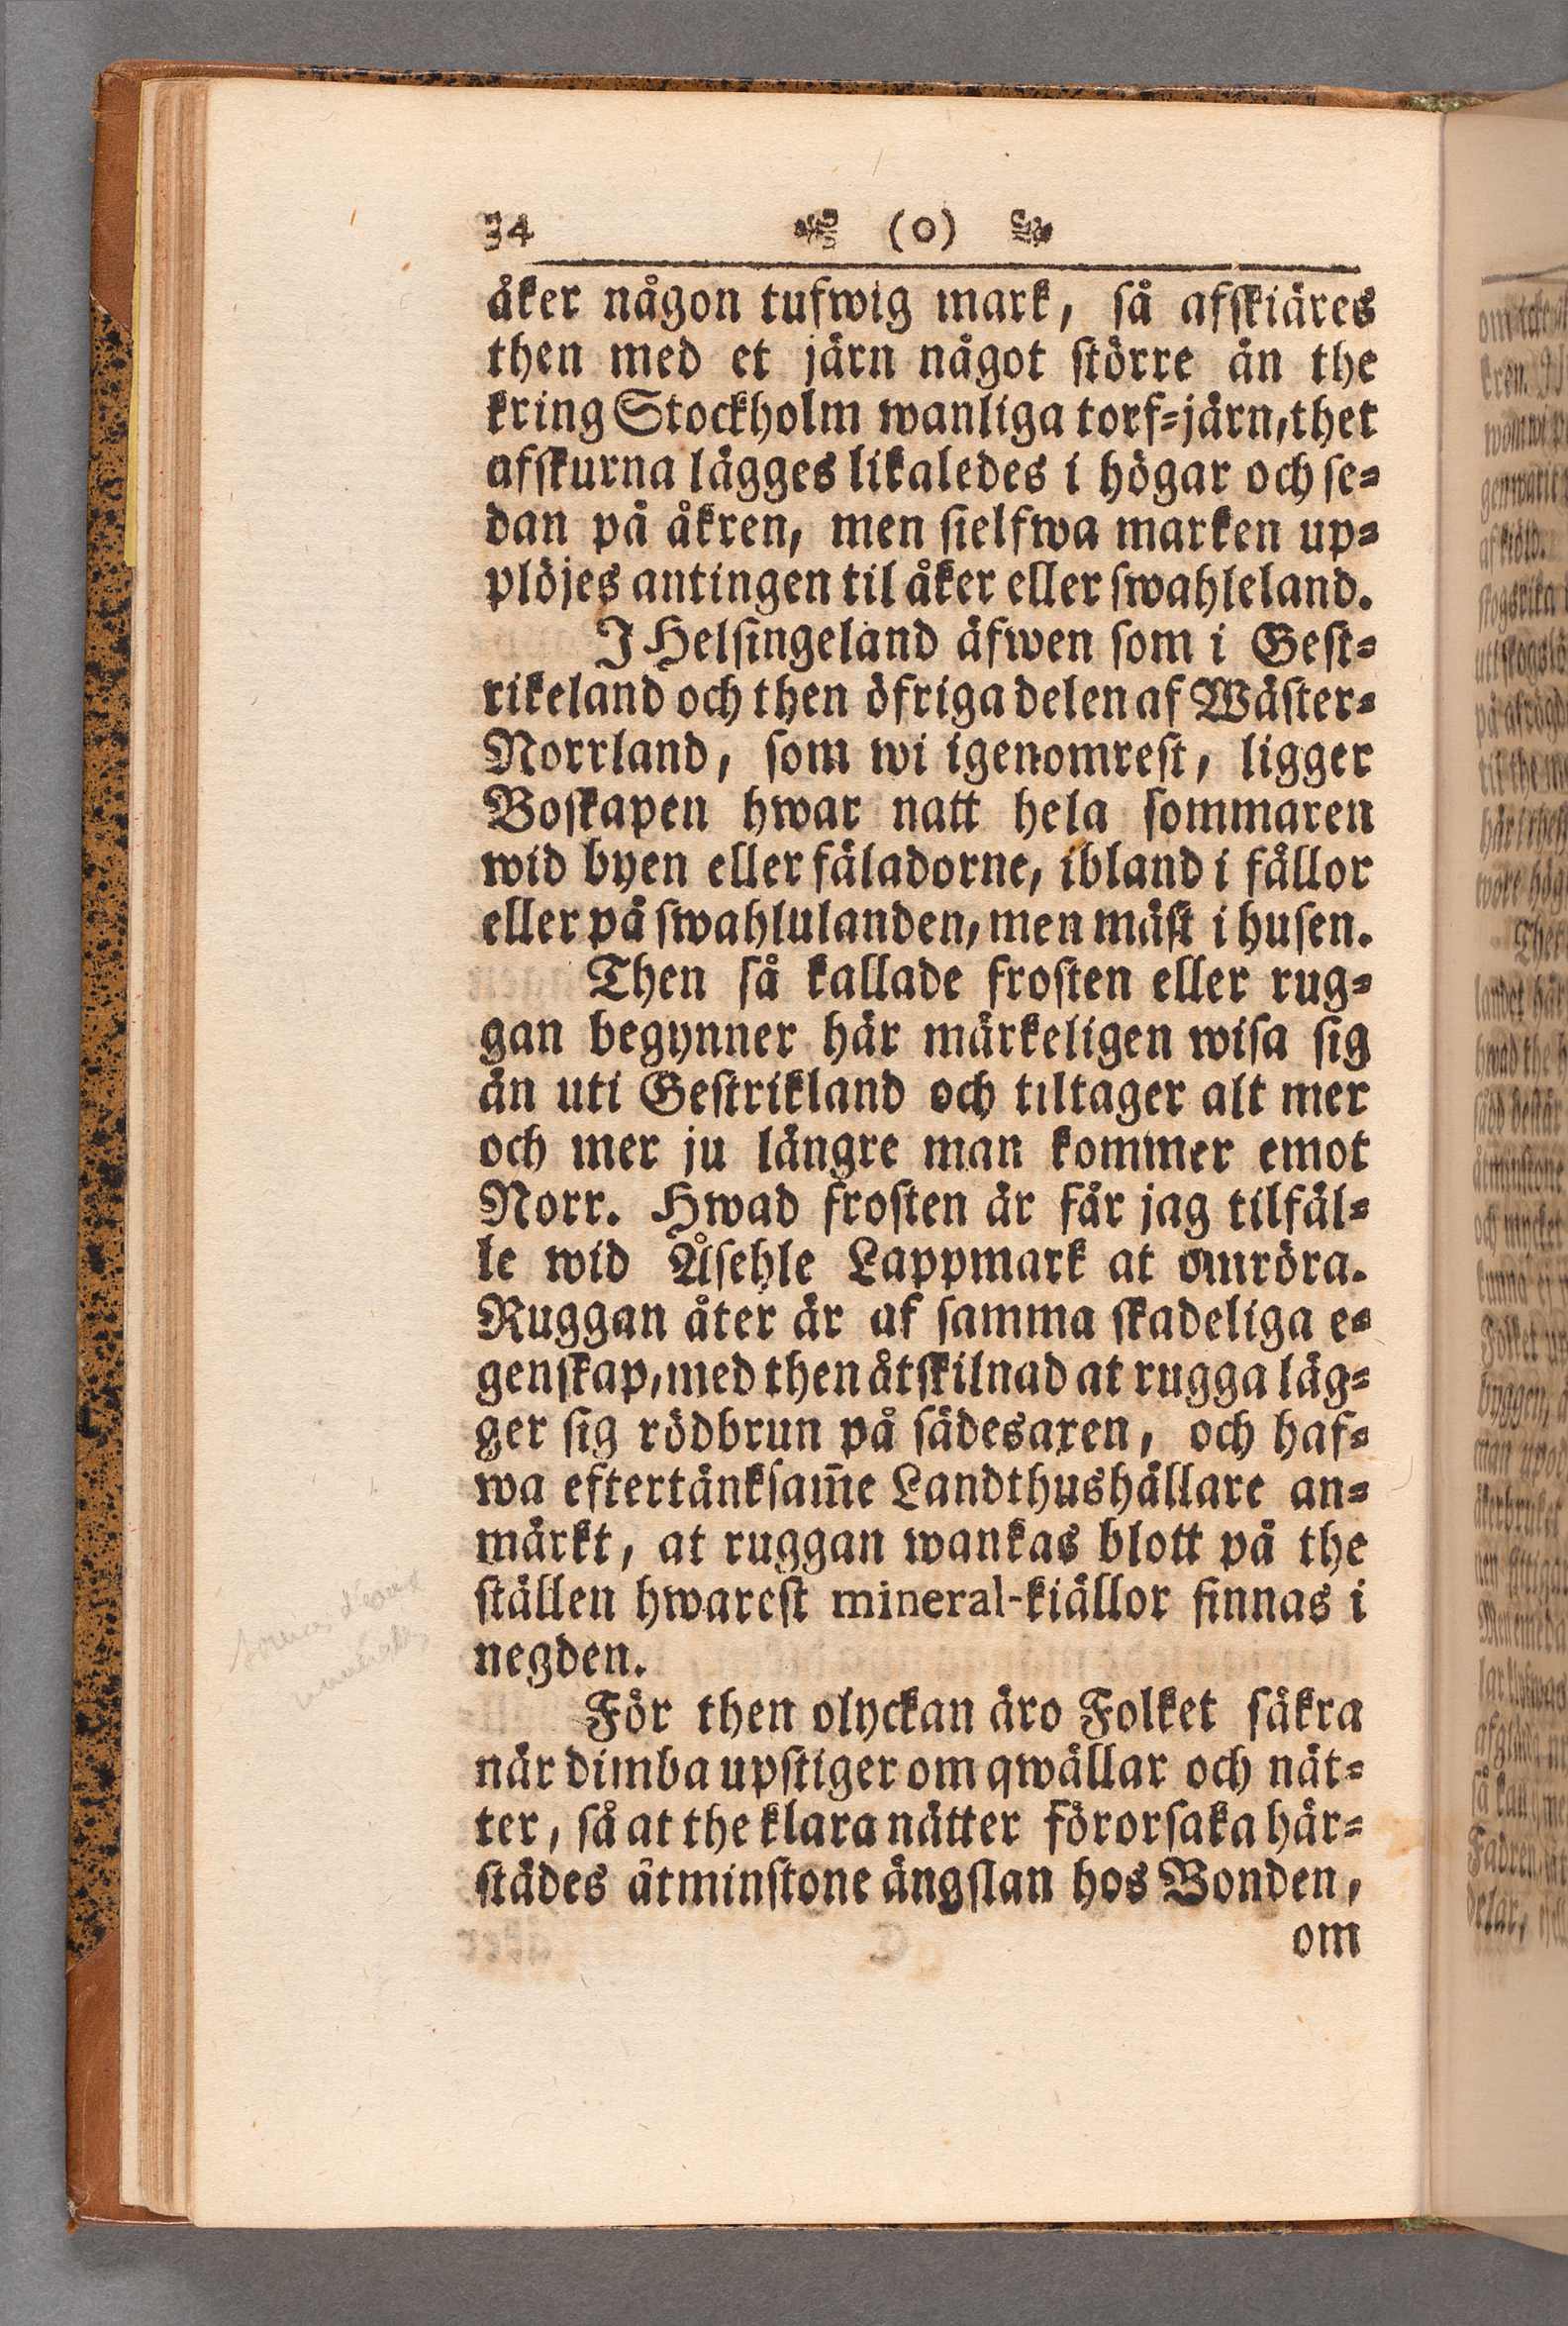 34 (o)
åker någon tufwig mark, så afskiäres
then med et järn något större än the
kring Stockholm wanliga torf-järn, thet
afskurna lägges likaledes i högar och se-
dan på åkren, men sielfwa marken up-
plöjes antingen til åker eller swahleland.
I Helsingeland äfwen som i Gest-
rikeland och then öfriga delen af Wäster-
Norrland, som wi igenomrest, ligger
Boskapen hwar natt hela sommaren
wid byen eller fäladorne, ibland i fållor
eller på swahlulanden, men mäst i husen.
Then så kallade frosten eller rug-
gan begynner här märkeligen wisa sig
än uti Gestrikland och tiltager alt mer
och mer ju längre man kommer emot
Norr. Hwad frosten är får jag tilfäl-
le wid Åsehle Lappmark at omröra.
Ruggan åter är af samma skadeliga e-
genskap, med then åtskilnad at rugga läg-
ger sig rödbrun på sädesaxen, och haf-
wa eftertänksam̃e Landthushållare an-
märkt, at ruggan wankas blott på the
ställen hwarest mineral-kiällor finnas i
negden.
För then olyckan äro Folket säkra
när dimba upstiger om qwällar och nät-
ter, så at the klara nätter förorsaka här-
städes åtminstone ängslan hos Bonden,
om